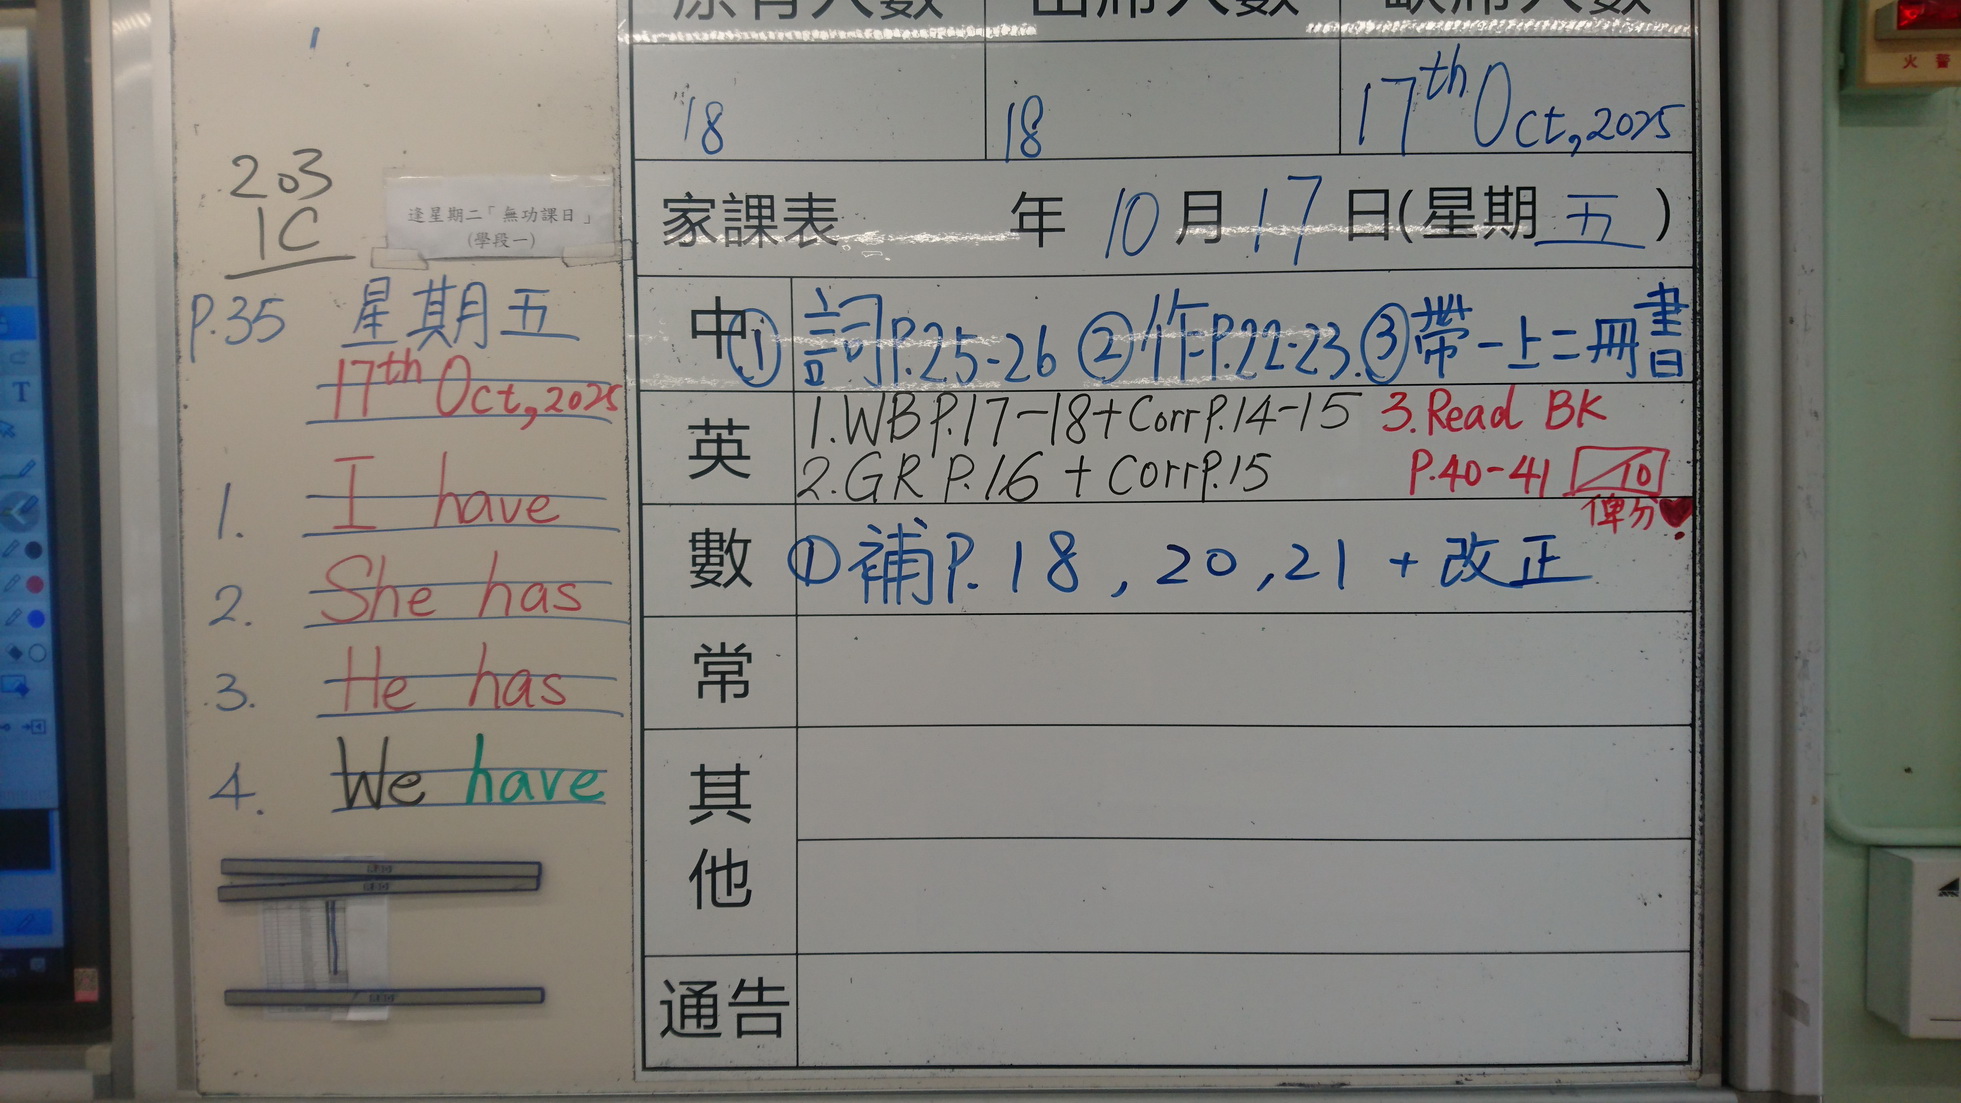 原有人數 出席人數 缺席人數
18 18 17th Oct, 2025
家課表 年 10 月 17 日(星期 五 )
中 ① 詞P.25-26 ②作P.22-23. ③帶一上二冊書
英 1.WB P.17-18+Corr P.14-15 3.Read BK
2.GR P.16 + Corr P.15 P.40-41 /10
俾分
數 ①補P.18, 20, 21 + 改正
常
其他
通告
203
1C
逢星期二「無功課日」
(學段一)
P.35 星期五
17th Oct, 2025
1. I have
2. She has
3. He has
4. We have
火警
T